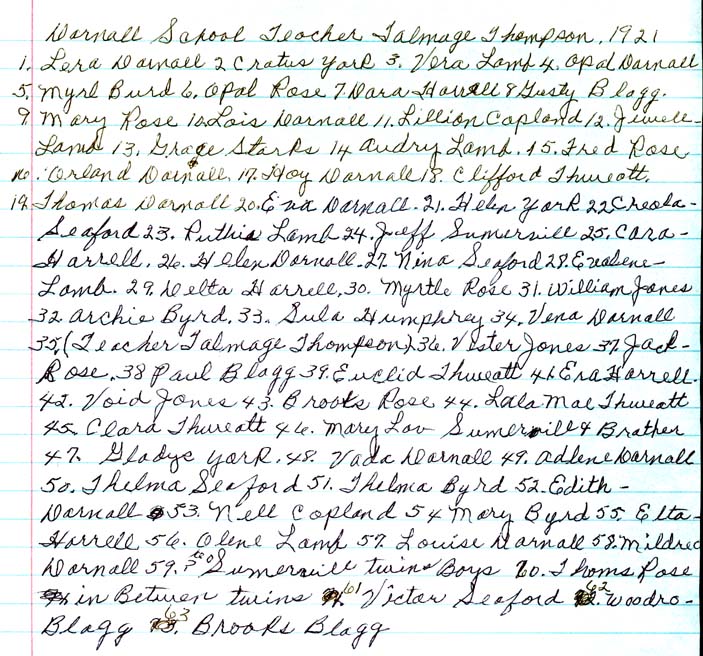 Darnall School Teacher Talmage Thompson, 1921
1. Lera Darnall 2 Cratus York 3. Vera Lamb 4. Opal Darnall
5. Myrl Burd 6. Opal Rose 7 Dara Harrell 8 Gusty Blagg.
9. Mary Rose 10 Lois Darnall 11. Lillion Copland 12. Jewell-
Lamb 13. Grace Starks 14 Audry Lamb. 15. Fred Rose
16. Orland Darnall. 17. Hoy Darnall 18. Clifford Thweatt.
19. Thomas Darnall 20. Eva Darnall. 21. Helen York 22 Creola-
Seaford 23. Ruthia Lamb 24. Jeff Sumervill 25. Cara-
Harrell. 26. Helen Darnall. 27. Nina Seaford 28. Evalene-
Lamb. 29. Delta Harrell, 30. Myrtle Rose 31. William Jones
32 Archie Byrd. 33. Sula Humphrey 34. Vena Darnall
35, (Teacher Talmage Thompson) 36. Vester Jones 37. Jack-
Rose. 38 Paul Blagg 39. Euclid Thweatt 41. Era Harrell.
42. Void Jones 43. Brooks Rose 44. Lala Mae Thweatt
45. Clara Thweatt 46. Mary Lov Sumervill & Brather
47. Gladys York. 48. Vada Darnall 49. Adlene Darnall
50. Thelma Seaford 51. Thelma Byrd 52. Edith -
Darnall 53. Nell Copland 54 Mary Byrd 55. Elta-
Harrell 56. Olene Lamb 57. Louise Darnall 58. Mildred
Darnall 59. Sumervill twins Boys 60. Thoms Rose
in Betwen twins 61 Victor Seaford 62. Woodro-
Blagg 63. Brooks Blagg